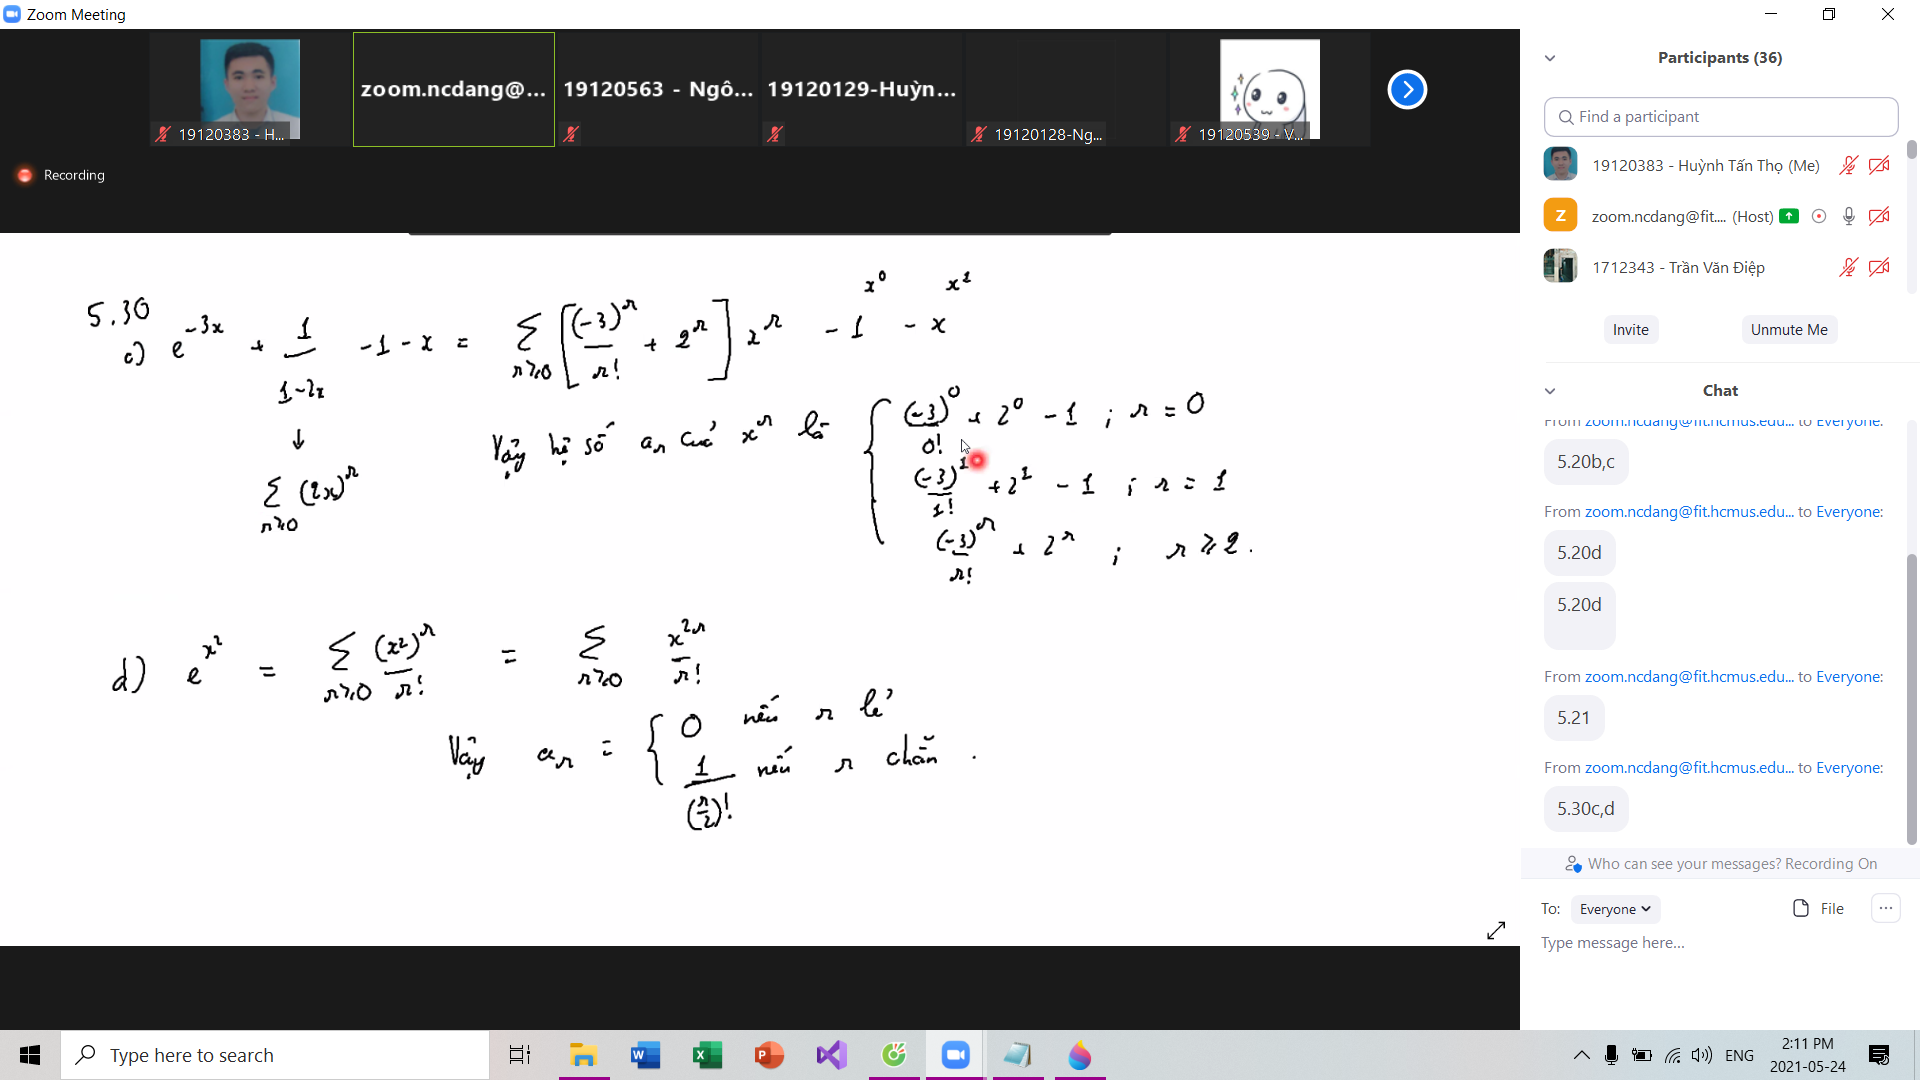 Zoom Meeting
zoom.ncdang@...
19120563 - Ngô...
19120129-Huỳn...
19120383 - H...
19120128-Ng...
19120539 - V...
Recording
5.30
c) e^{-3x} + \frac{1}{1-2x} - 1 - x = \sum_{r≥0} [\frac{(-3)^r}{r!} + 2^r] x^r - 1 - x
x^0 x^1
↓
\sum_{r≥0} (2x)^r
Vậy hệ số a_r của x^r là
\frac{(-3)^0}{0!} + 2^0 - 1 ; r = 0
\frac{(-3)^1}{1!} + 2^1 - 1 ; r = 1
\frac{(-3)^r}{r!} + 2^r ; r ≥ 2.
d) e^{x^2} = \sum_{r≥0} \frac{(x^2)^r}{r!} = \sum_{r≥0} \frac{x^{2r}}{r!}
Vậy a_r = { 0 nếu r lẻ
\frac{1}{(\frac{r}{2})!} nếu r chẵn.
Participants (36)
Find a participant
19120383 - Huỳnh Tấn Thọ (Me)
Z
zoom.ncdang@fit.... (Host)
1712343 - Trần Văn Điệp
Invite
Unmute Me
Chat
From zoom.ncdang@fit.hcmus.edu... to Everyone:
5.20b,c
From zoom.ncdang@fit.hcmus.edu... to Everyone:
5.20d
5.20d
From zoom.ncdang@fit.hcmus.edu... to Everyone:
5.21
From zoom.ncdang@fit.hcmus.edu... to Everyone:
5.30c,d
Who can see your messages? Recording On
To: Everyone
File
Type message here...
Type here to search
ENG
2:11 PM
2021-05-24